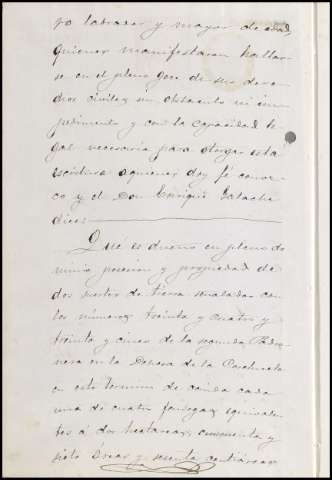 ro labrador y mayor de edad,
quienes manifestaron hallar-
se en el pleno goce de sus dere-
chos civiles sin obstáculo ni im-
pedimento y con la capacidad le-
gal necesaria para otorgar esta
escritura a quienes doy fé conoz-
co y el Don Enrique Galache
dice:
Qué es dueño en pleno do-
minio posesion y propiedad de
dos suertes de tierra señaladas con
los números treinta y cuatro y
treinta y cinco de la segunda
nera en la Dehesa de la
en este termino de cabida cada
una de cuatro fanegas, equivalen-
tes á dos hectareas, cincuenta y
siete áreas y centiáreas